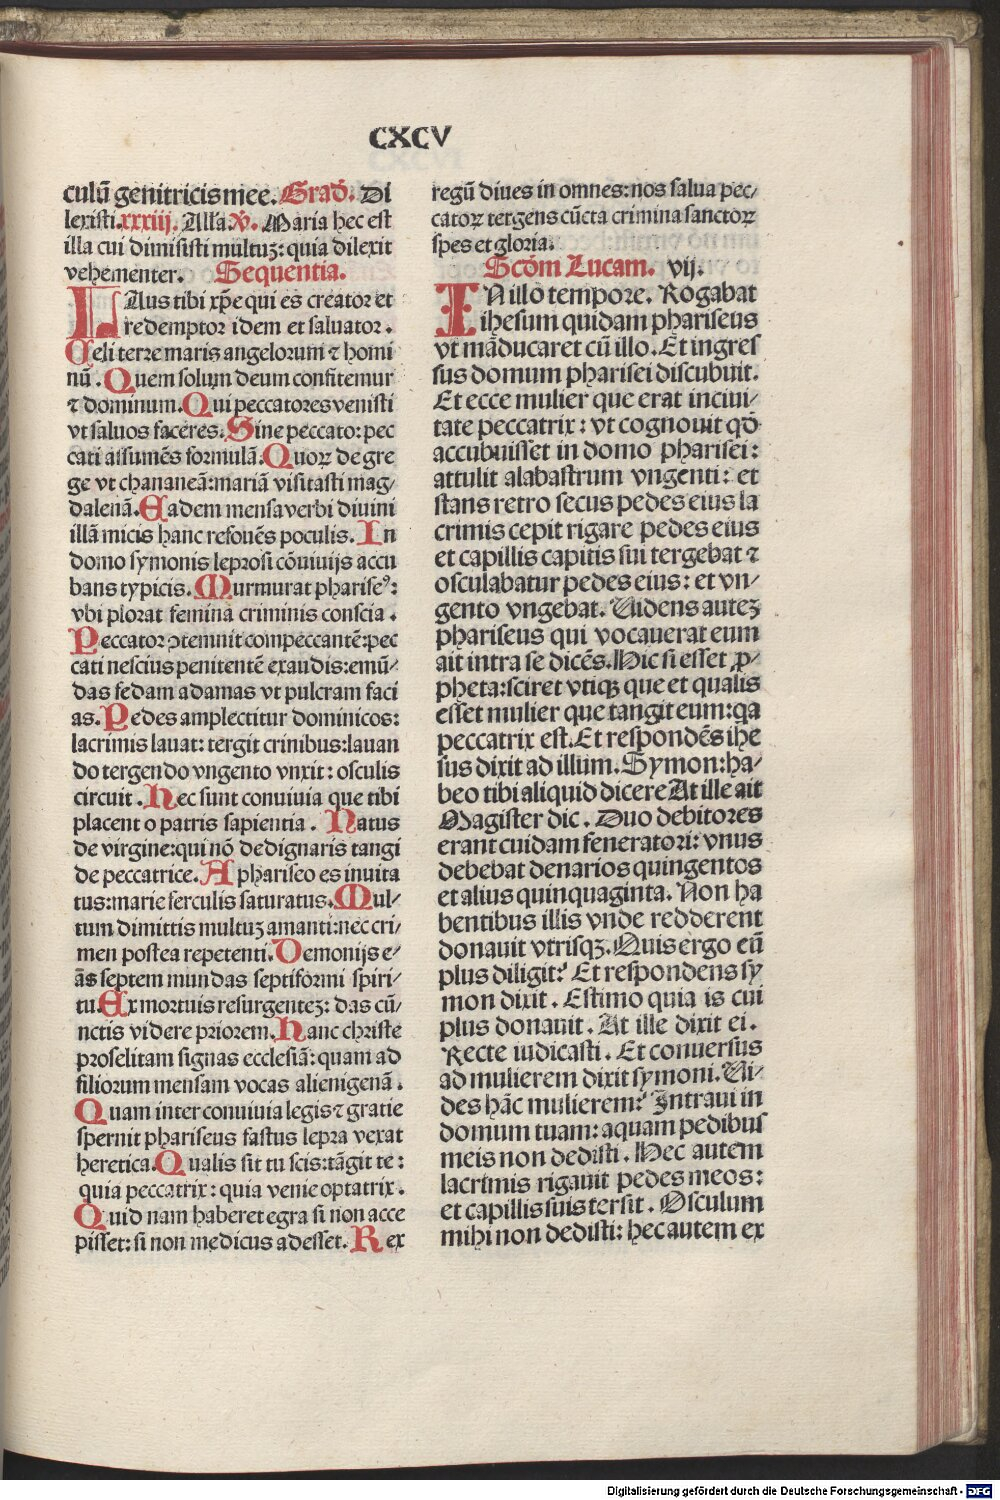 CXCV
culū genitricis mee. Grad̄. Di
lexisti. xxxiij. Alĺa. ꝟ. Maria hec est
illa cui dimisisti multuꝫ: quia dilexit
vehementer. Sequentia.
LAus tibi xp̄e qui es creator et
redemptor idem et saluator.
Celi terre maris angelorum ⁊ homi
nū. Quem solum deum confitemur
⁊ dominum. Qui peccatores venisti
vt saluos faceres. Sine peccato: pec
cati assumēs formulā. Quoꝝ de gre
ge vt chananeā: mariā visitasti mag⸗
dalenā. Eadem mensa verbi diuini
illā micis hanc refouēs poculis. In
domo symonis leprosi cōuiuijs accu
bans typicis. Murmurat pharise⁹:
vbi plorat femina criminis conscia.
Peccator ↄtemnit compeccantē: pec
cati nescius penitentē exaudis: emū⸗
das fedam adamas vt pulcram faci
as. Pedes amplectitur dominicos:
lacrimis lauat: tergit crinibus: lauan
do tergendo vngento vnxit: osculis
circuit. Hec sunt conuiuia que tibi
placent o patris sapientia. Natus
de virgine: qui nō dedignaris tangi
de peccatrice. A phariseo es inuita
tus: marie ferculis saturatus. Mul⸗
tum dimittis multuꝫ amanti: nec cri⸗
men postea repetenti. Demonijs e⸗
ās septem mundas septiformi spiri⸗
tu Ex mortuis resurgenteꝫ: das cū⸗
nctis videre priorem. Hanc christe
proselitam signas ecclesiā: quam ad
filiorum mensam vocas alienigenā.
Quam inter conuiuia legis ⁊ gratie
spernit phariseus fastus lepra vexat
heretica. Qualis sit tu scis: tāgit te:
quia peccatrix: quia venie optatrix.
Quid nam haberet egra si non acce
pisset: si non medicus adesset. Rex
regū diues in omnes: nos salua pec⸗
catoꝝ tergens cūcta crimina sanctoꝝ
spes et gloria.
Scd̄m Lucam. vij.
IN illō tempore. Rogabat
ihesum quidam phariseus
vt māducaret cū illo. Et ingres
sus domum pharisei discubuit.
Et ecce mulier que erat in ciui⸗
tate peccatrix: vt cognouit qđ
accubuisset in domo pharisei:
attulit alabastrum vngenti: et
stans retro secus pedes eius la
crimis cepit rigare pedes eius
et capillis capitis sui tergebat ⁊
osculabatur pedes eius: et vn⸗
gento vngebat. Videns auteꝫ
phariseus qui vocauerat eum
ait intra se dicēs. Hic si esset ꝓ⸗
pheta: sciret vtiqꝫ que et qualis
esset mulier que tangit eum: qa
peccatrix est. Et respondēs ihe
sus dixit ad illum. Symon: ha⸗
beo tibi aliquid dicere At ille ait
Magister dic. Duo debitores
erant cuidam feneratori: vnus
debebat denarios quingentos
et alius quinquaginta. Non ha
bentibus illis vnde redderent
donauit vtrisqꝫ. Quis ergo eū
plus diligit? Et respondens sy
mon dixit. Estimo quia is cui
plus donauit. At ille dixit ei.
Recte iudicasti. Et conuersus
ad mulierem dixit symoni. Vi⸗
des hāc mulierem? Intraui in
domum tuam: aquam pedibus
meis non dedisti. Hec autem
lacrimis rigauit pedes meos:
et capillis suis tersit. Osculum
mihi non dedisti: hec autem ex
Digitalisierung gefördert durch die Deutsche Forschungsgemeinschaft - DFG